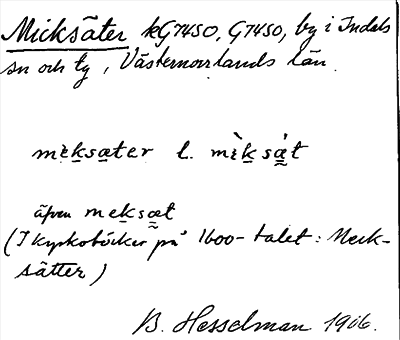 Micksäter kG7450, G7450, by i Indals
sn och tg, Västernorrlands län.
mèksæter l. mìksæ̀t
även meksæt
(I kyrkoböcker på 1600-talet: Meck-
sätter)
B. Hesselman 1906.